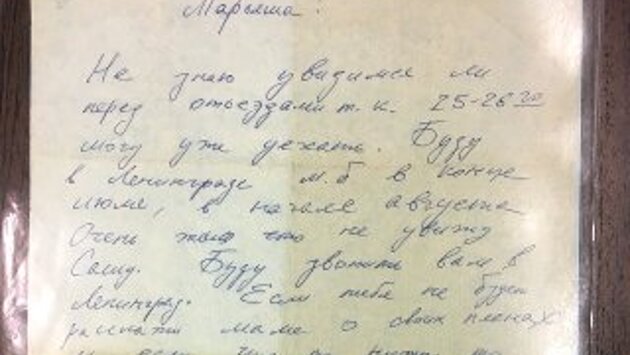 Марьяша!
Не знаю увидимся ли
перед отъездами т.к. 25-26го
могу уже уехать. Буду
в Ленинграде м.б в конце
июля, в начале августа
Очень жаль что не увижу
Сашу. Буду звонить вам в
Ленинград. Если тебя не будет
расскажи маме о своих планах